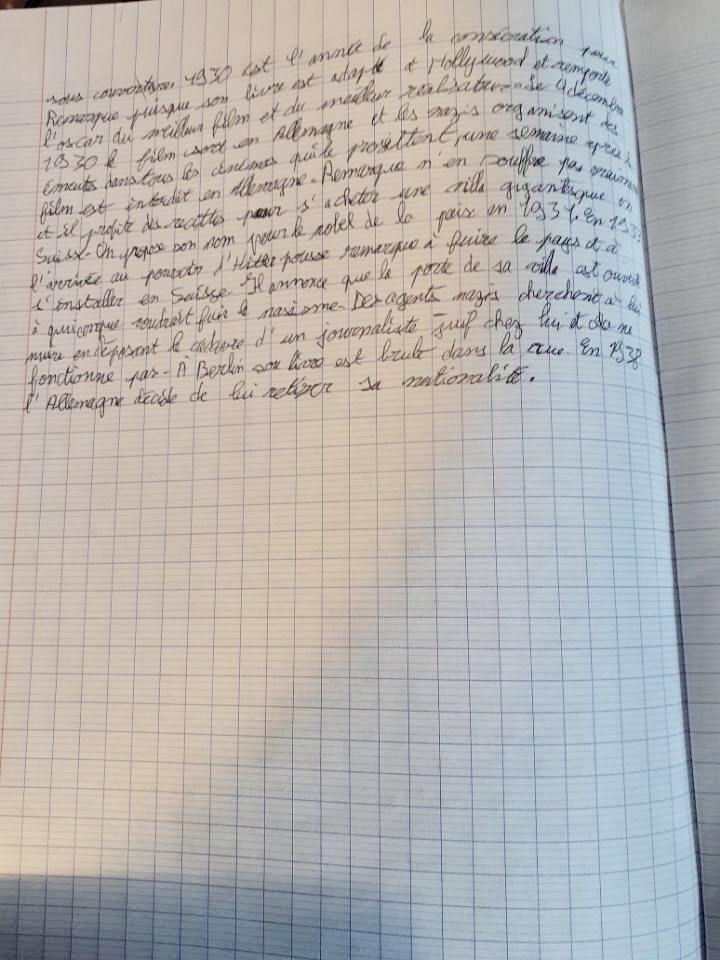 sous couverture. 1930 est l'année de la consécration pour
Remarque puisque son livre est adapté à Hollywood et remporte
l'oscar du meilleur film et du meilleur réalisateur. Le 4 décembre
1930 le film sort en Allemagne et les nazis organisent des
émeutes dans tous les cinémas qui le projettent, une semaine après le
film est interdit en Allemagne. Remarque n'en souffre pas vraiment
et il profite des recettes pour s'acheter une villa gigantesque en
Suisse. On propose son nom pour le nobel de la paix en 1931. En 1933
l'arrivée au pouvoir d'Hitler pousse remarque à fuire le pays et à
s'installer en Suisse. Il annonce que la porte de sa villa est ouverte
à quiconque voudrait fuir le nazisme. Des agents nazis cherchent à lui
nuire en déposant le cadavre d'un journaliste juif chez lui et ça ne
fonctionne pas. À Berlin son livre est brulé dans la rue. En 1938
l'Allemagne décide de lui retirer sa nationalité.